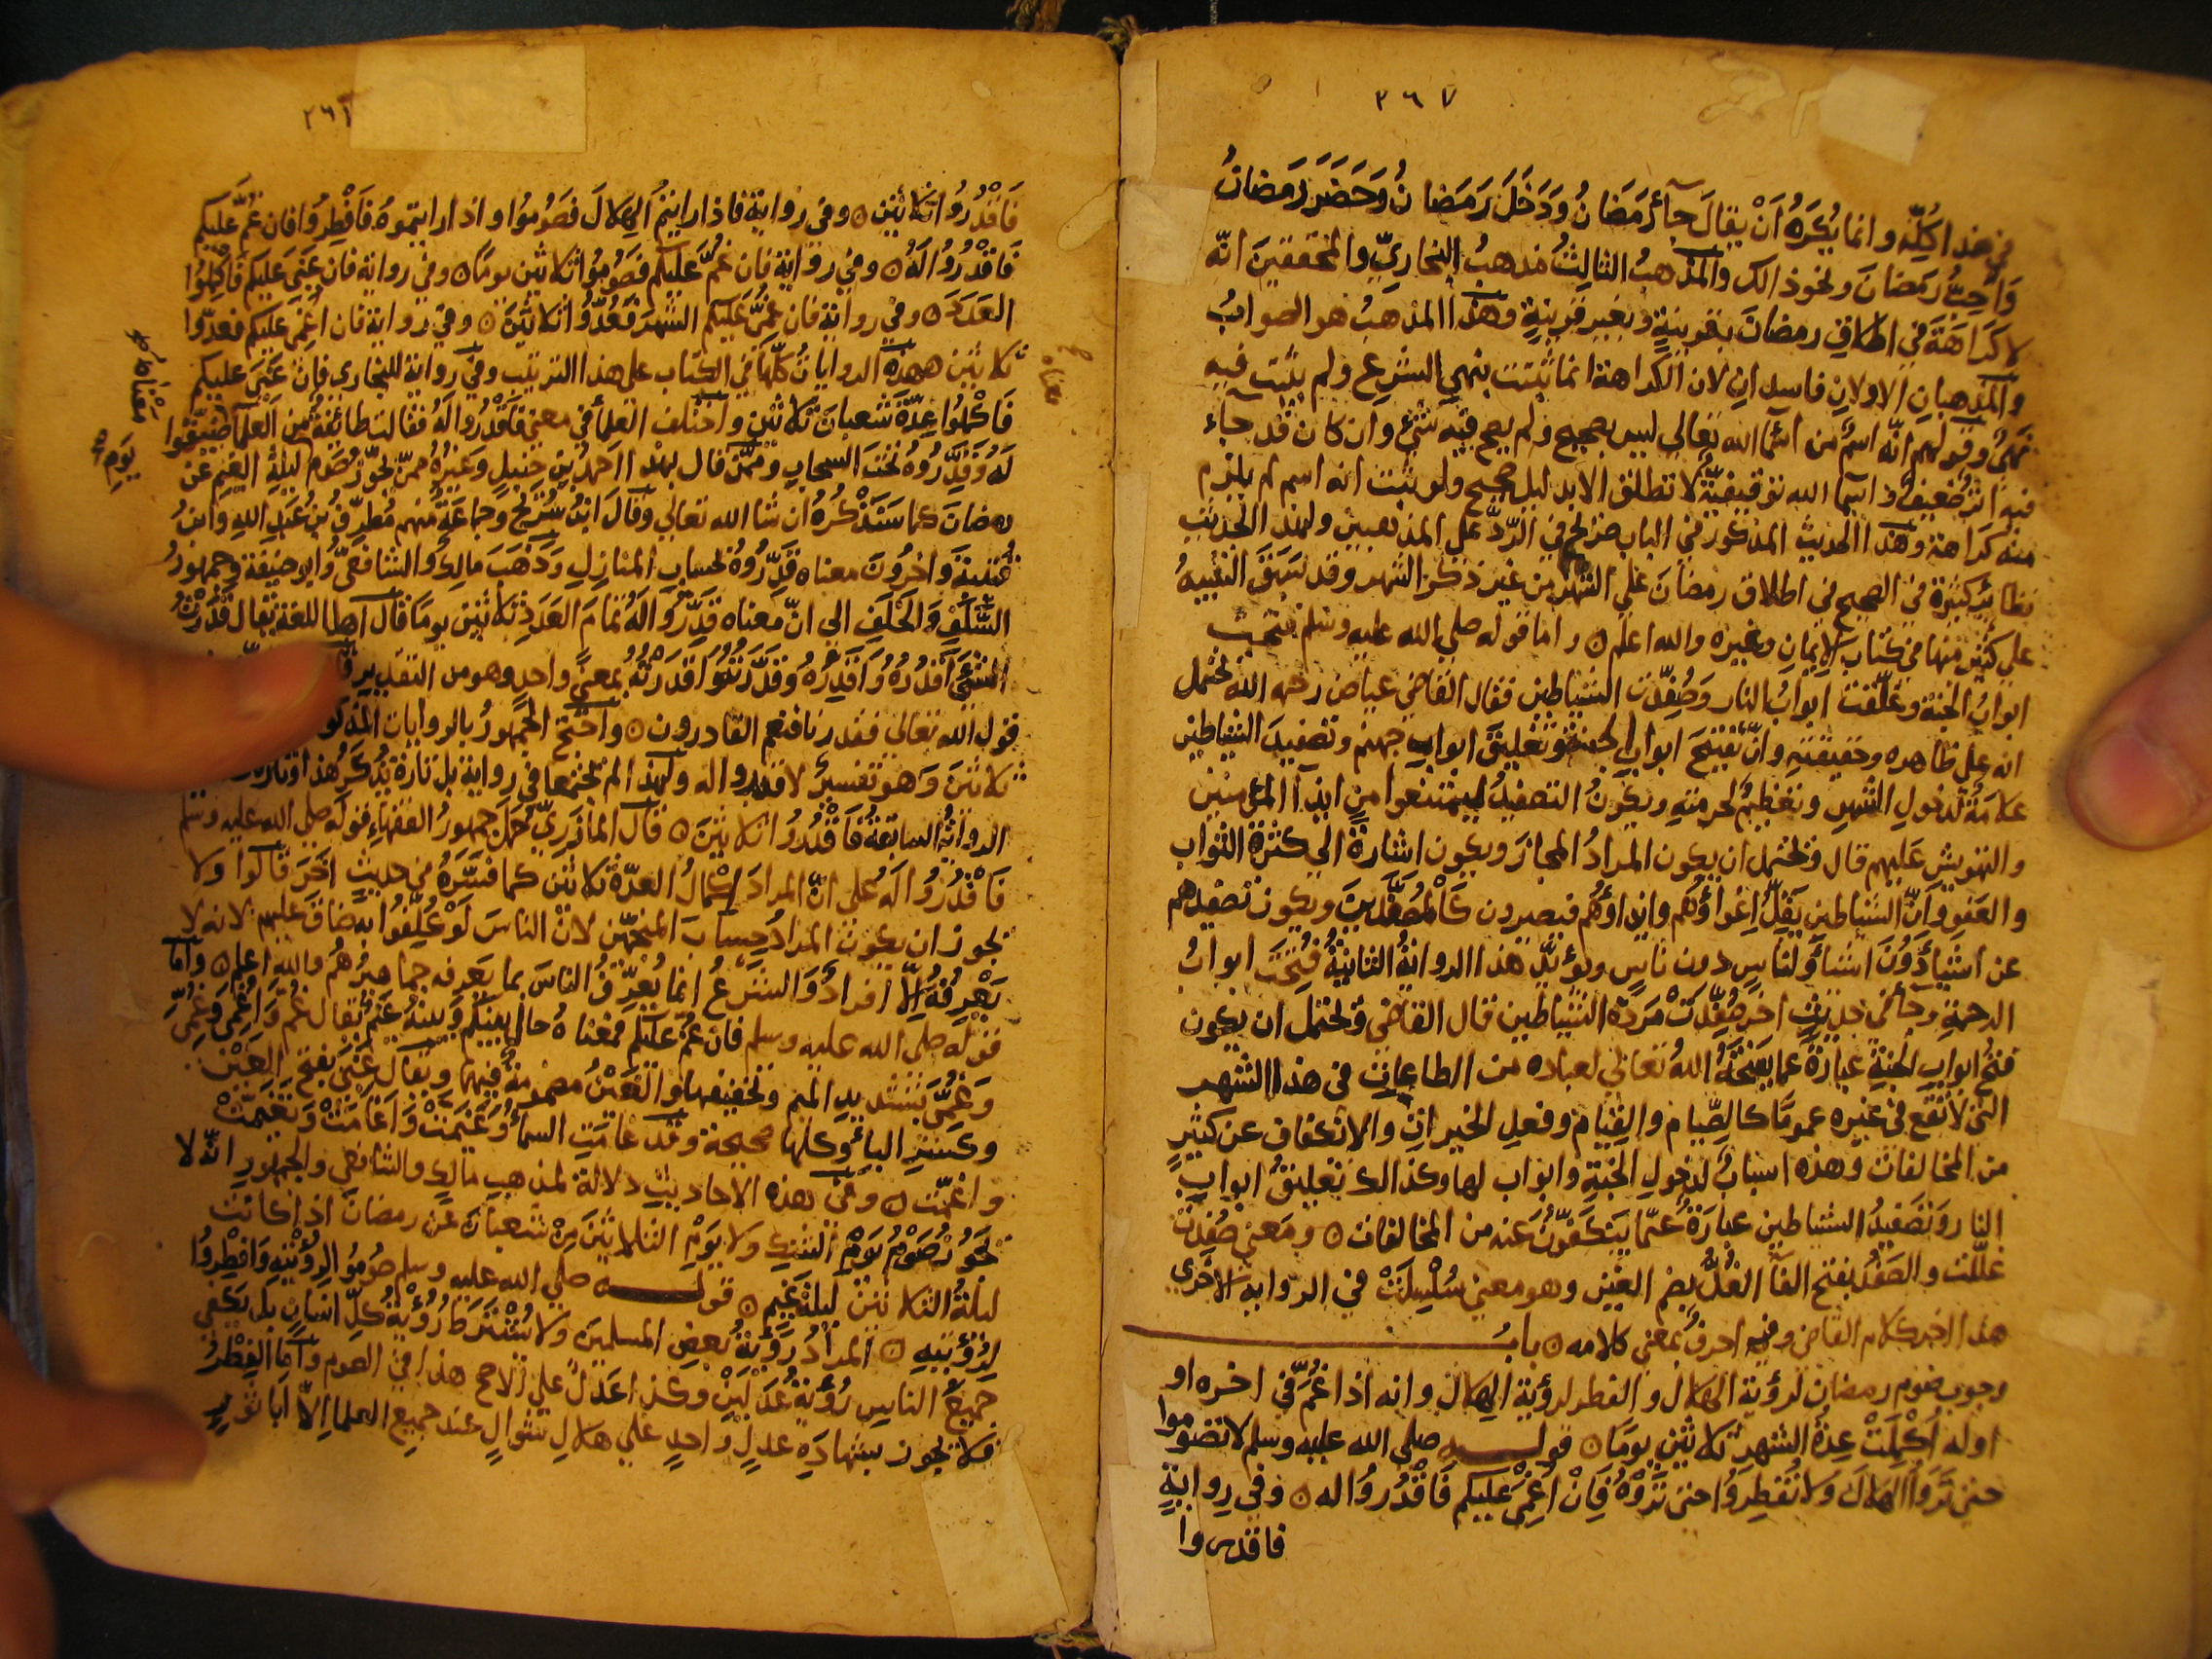 ٢٦٧
في هذا كله وانما يُكرَهُ اَنْ يقالَ جآء رَمَضَانُ وَدَخَلَ رَمَضَانُ وَحَضَرَ رَمَضانُ
وَاُحِبُّ رَمَضَانَ ونحوذالك والمذهبُ الثالِثُ مذهبُ البخاريِّ والمحققينَ انّه
لا كَرَاهَةَ في اطلاقِ رمضانَ بقرينةٍ وبغيرِ قرينةٍ وهذا المذهبُ هو الصوابُ
والمذهبانِ الاولانِ فاسدانِ لان الكراهة انما تثبت بنهيِ الشرعِ ولم يثبت فيه
نهيٌ وقولهم انّه اسمٌ من اسمآ الله تعالى ليس بصحيح ولم يصح فيه شئٌ وان كان قد جآء
فيه اثرٌ ضعيفٌ واسمآ الله توقيفيّةٌ لا تطلق الا بدليل صحيح ولو ثبت انه اسم لم يلزم
منه كراهة وهذا الحديث المذكور في الباب صريح في الرّدّ على المذهبين ولهذا الحديث
نظائر كثيرة في الصحيح في اطلاق رمضانَ على الشهر من غير ذكر الشهر وقد سَبَقَ التنبيهُ
على كثير منها في كتاب الايمانِ وغيره والله اعلم ٥ واما قوله صلي الله عليه وسلم فتحت
ابوابُ الجنة وغلّقت ابوابُ النار وَصُفِّدَت الشياطين فقال القاضي عياض رحمه الله يحتمل
انه على ظاهره وحقيقته وانّ تفتيحَ ابوابِ الجنة وتغليقَ ابوابِ جهنم وتصفيدَ الشياطين
علامةٌ لدخولِ الشهرِ وتعظيمٌ لحرمته ويكونُ التصفيدُ ليمتنعوا من ايذآ المؤمنين
والتهويش عليهم قال ويحتمل ان يكون المرادُ المجازَ ويكون اشارةً الي كثرةِ الثواب
والعفوِ وَاَنَّ الشياطين يَقِلُّ اِغواؤهم وايذاؤُهم فيصيرون كَالْمُصَفَّدِينَ ويكون تصفيدهم
عن اشيآءَ دُونَ اشيآءَ ولناسٍ دون ناسٍ ويؤيّدُ هذا الروايةُ الثانيةُ فُتِحَتْ ابوابُ
الرحمة وجآء في حديث اخر صُفِّدَتْ مَرَدَةُ الشياطين قال القاضي ويحتمل ان يكون
فتحُ ابوابِ الجنةِ عبارةً عما يَفْتَحُهُ اللهُ تعالي لعباده من الطاعات في هذا الشهر
التي لا تقع في غيره عموما كالصِّيام والقِيَام وفعلِ الخيراتِ والانكفاف عن كثيرٍ
من المخالفات وهذه اسبابٌ لدخولِ الجنةِ وابواب لها وكذالك تغليقُ ابوابِ
النار وَتَصْفِيدُ الشياطين عبارَةٌ عمّا يَنكَفّونَ عنه من المخالفات ٥ ومَعنى صُفِّدَتْ
غُلّلت والصَفَدُ بفتح الفآ الغُلُّ بضم الغين وهو معنى سُلْسِلَتْ في الرواية الاخري
هذا اخر كلام القاضي وفيه احرفٌ بمعنى كلامه ٥ بابُ
وجوب صوم رمضان لرؤية الهلال والفطر لرؤية الهلال وانه اذا غُمَّ في اخره او
اوله اُكمِلَتْ عِدةُ الشهر ثلاثين يومًا ٥ قوله صلى الله عليه وسلم لا تصوموا
حتى تَرَوا الهلالَ وَلا تُفطِرُوا حتى تَرَوْهُ فَاِنْ اُغْمِيَ عليكم فَاقْدُرُوا له ٥ وفي روايةٍ
فاقدروا
٢٦٢
فَاقْدُرُوا ثلاثين ٥ وفي رواية فاذا رايتم الهلالَ فصُومُوا واذا رايتموهُ فَافْطِرُوا فان غُمَّ عليكم
فَاقْدُرُوا لَهُ ٥ وفي رواية فان غُمَّ عليكم فصُومُوا ثلاثين يومًا ٥ وفي رواية فان غَمِّيَ عليكم فَاَكمِلُوا
العَدَدَ ٥ وفي رواية فان عُمِّيَ عَليكم الشهرُ فَعُدُّوا ثلاثينَ ٥ وفي رواية فان اُغمِيَ عليكم فعدّوا
ثلاثين هذه الروايات كلّها في الكتاب على هذا الترتيب وفي رواية للبخاري فان غَبِيَ عليكم
فَاكْمِلُوا عِدّةَ شَعبانَ ثلاثين واختلف العلمآ في معنى فاقدُرُوا لَهُ فقالت طائفةٌ من العلمآ ضَيِّقُوا
لَهُ وَقَدِّرُوهُ تَحْتَ السحابِ وممن قال بهذا احمدُ بن حنبلٍ وغيرُهُ ممّن يُجوِّزُ صَوْمَ ليلةِ الغيمِ عن
رمضانَ كما سَنَذْكُرُهُ ان شا الله تعالي وقالَ ابنُ سُرَيجٍ وجماعةٌ منهم مُطَرِّفُ بن عبدِ اللهِ وابنُ
قُتيبةَ واخرُونَ معناه قَدِّرُوهُ بحسابِ المنازلِ وَذَهَبَ مالك والشافعيُّ وابو حنيفة وجمهورُ
السَّلَفِ وَالخلفِ الى انّ معناه قَدِّرُوا لَهُ تمامَ العَدَدِ ثلاثين يومًا قال اهل اللغة يقال قَدَرْتُ
الشئَ اَقدُرُهُ وَاَقدِرُهُ وَقَدَّرْتُهُ وَاَقْدَرْتُهُ بمعنًى واحدٍ وهو من التقدير
قول الله تعالي فقدرنا فنعم القادرون ٥ واحتج الجمهورُ بالروايات
ثلاثينَ وَهو تفسيرٌ لاقدروا له ولهذا لم يجتمعا في رواية بل تارة يُذكرُ هذا وتارة
الروايةُ السابقةُ فَاقْدُرُوا ثلاثينَ ٥ قال المازَرِيّ حمل جمهورُ الفقهاءِ قوله صلى الله عليه وسلم
فَاقْدُرُوا لَهُ على انّ المرادَ اِكمالُ العدّة ثلاثين كما فسَّرَهُ في حديثٍ اخَرَ قالوا ولا
يجوز ان يكونَ المرادُ حِسابَ المنجّمين لانّ الناسَ لَوْ كُلِّفُوا به ضاقَ عليهم لانه لا
يَعْرِفُهُ اِلّا افرادٌ وَالشرعُ انما يُعَرِّفُ الناسَ بما يَعرفه جماهيرُهُم والله اعلم ٥ واما
قوله صلى الله عليه وسلم فان غُمَّ عليكم فمعناهُ حالَ بينكم وَبينهُ غَيمٌ يقال غُمَّ واُغْمِيَ وغُمِّيَ
وَغُمِيَ بتشديدِ الميم وتخفيفها والغَينُ مضمومةٌ فيهما ويقال غَبِيَ بفتح الغين
وكسرِ البآءِ وكلها صحيحة وقد غامَتِ السمآءُ وَغَيَّمَتْ وَاَغامَتْ وَتَغَيَّمَتْ
واغمّت ٥ وفي هذه الاحاديث دلالة لمذهبِ مالك والشافعي والجمهورِ انّه لا
يَجُوزُ صَوْمُ يَوْمِ الشكِ ولا يَوْمِ الثلاثينَ مِنْ شَعبانَ عَن رمضانَ اذا كانت
ليلةُ الثلاثين ليلةَ غَيمٍ ٥ قوله صلي الله عليه وسلم صُومُوا لرُؤيتِهِ وَافْطِرُوا
لِرُؤيَتِهِ ٥ المرادُ رؤيةُ بعضِ المسلمين ولا يُشْتَرَطُ رُؤيةُ كلِّ انسانٍ بل يكفي
جميعَ الناسِ رُؤيَةُ عَدْلَيْنِ وكذا عَدلٌ علي الاصح هذا في الصوم وَاَمّا الفِطرُ
فلا يجوز بشهادَةِ عدلٍ واحدٍ علي هلالِ شوالٍ عند جميع العلما اِلّا اَبا ثورٍ
مَعْناه
يَومِ